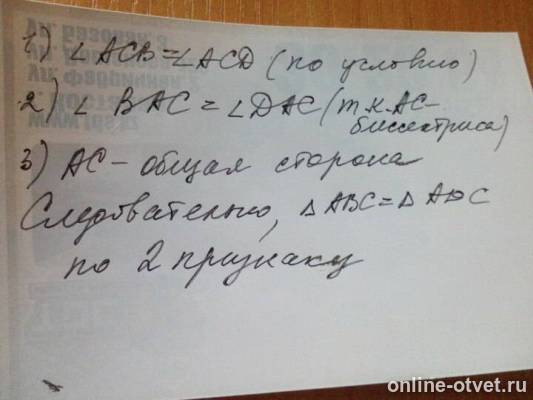 1) ∠ACB = ∠ACD (по условию)
2) ∠BAC = ∠DAC (т.к. AC-
биссектриса)
3) AC - общая сторона
Следовательно, △ABC = △ADC
по 2 признаку
online-otvet.ru